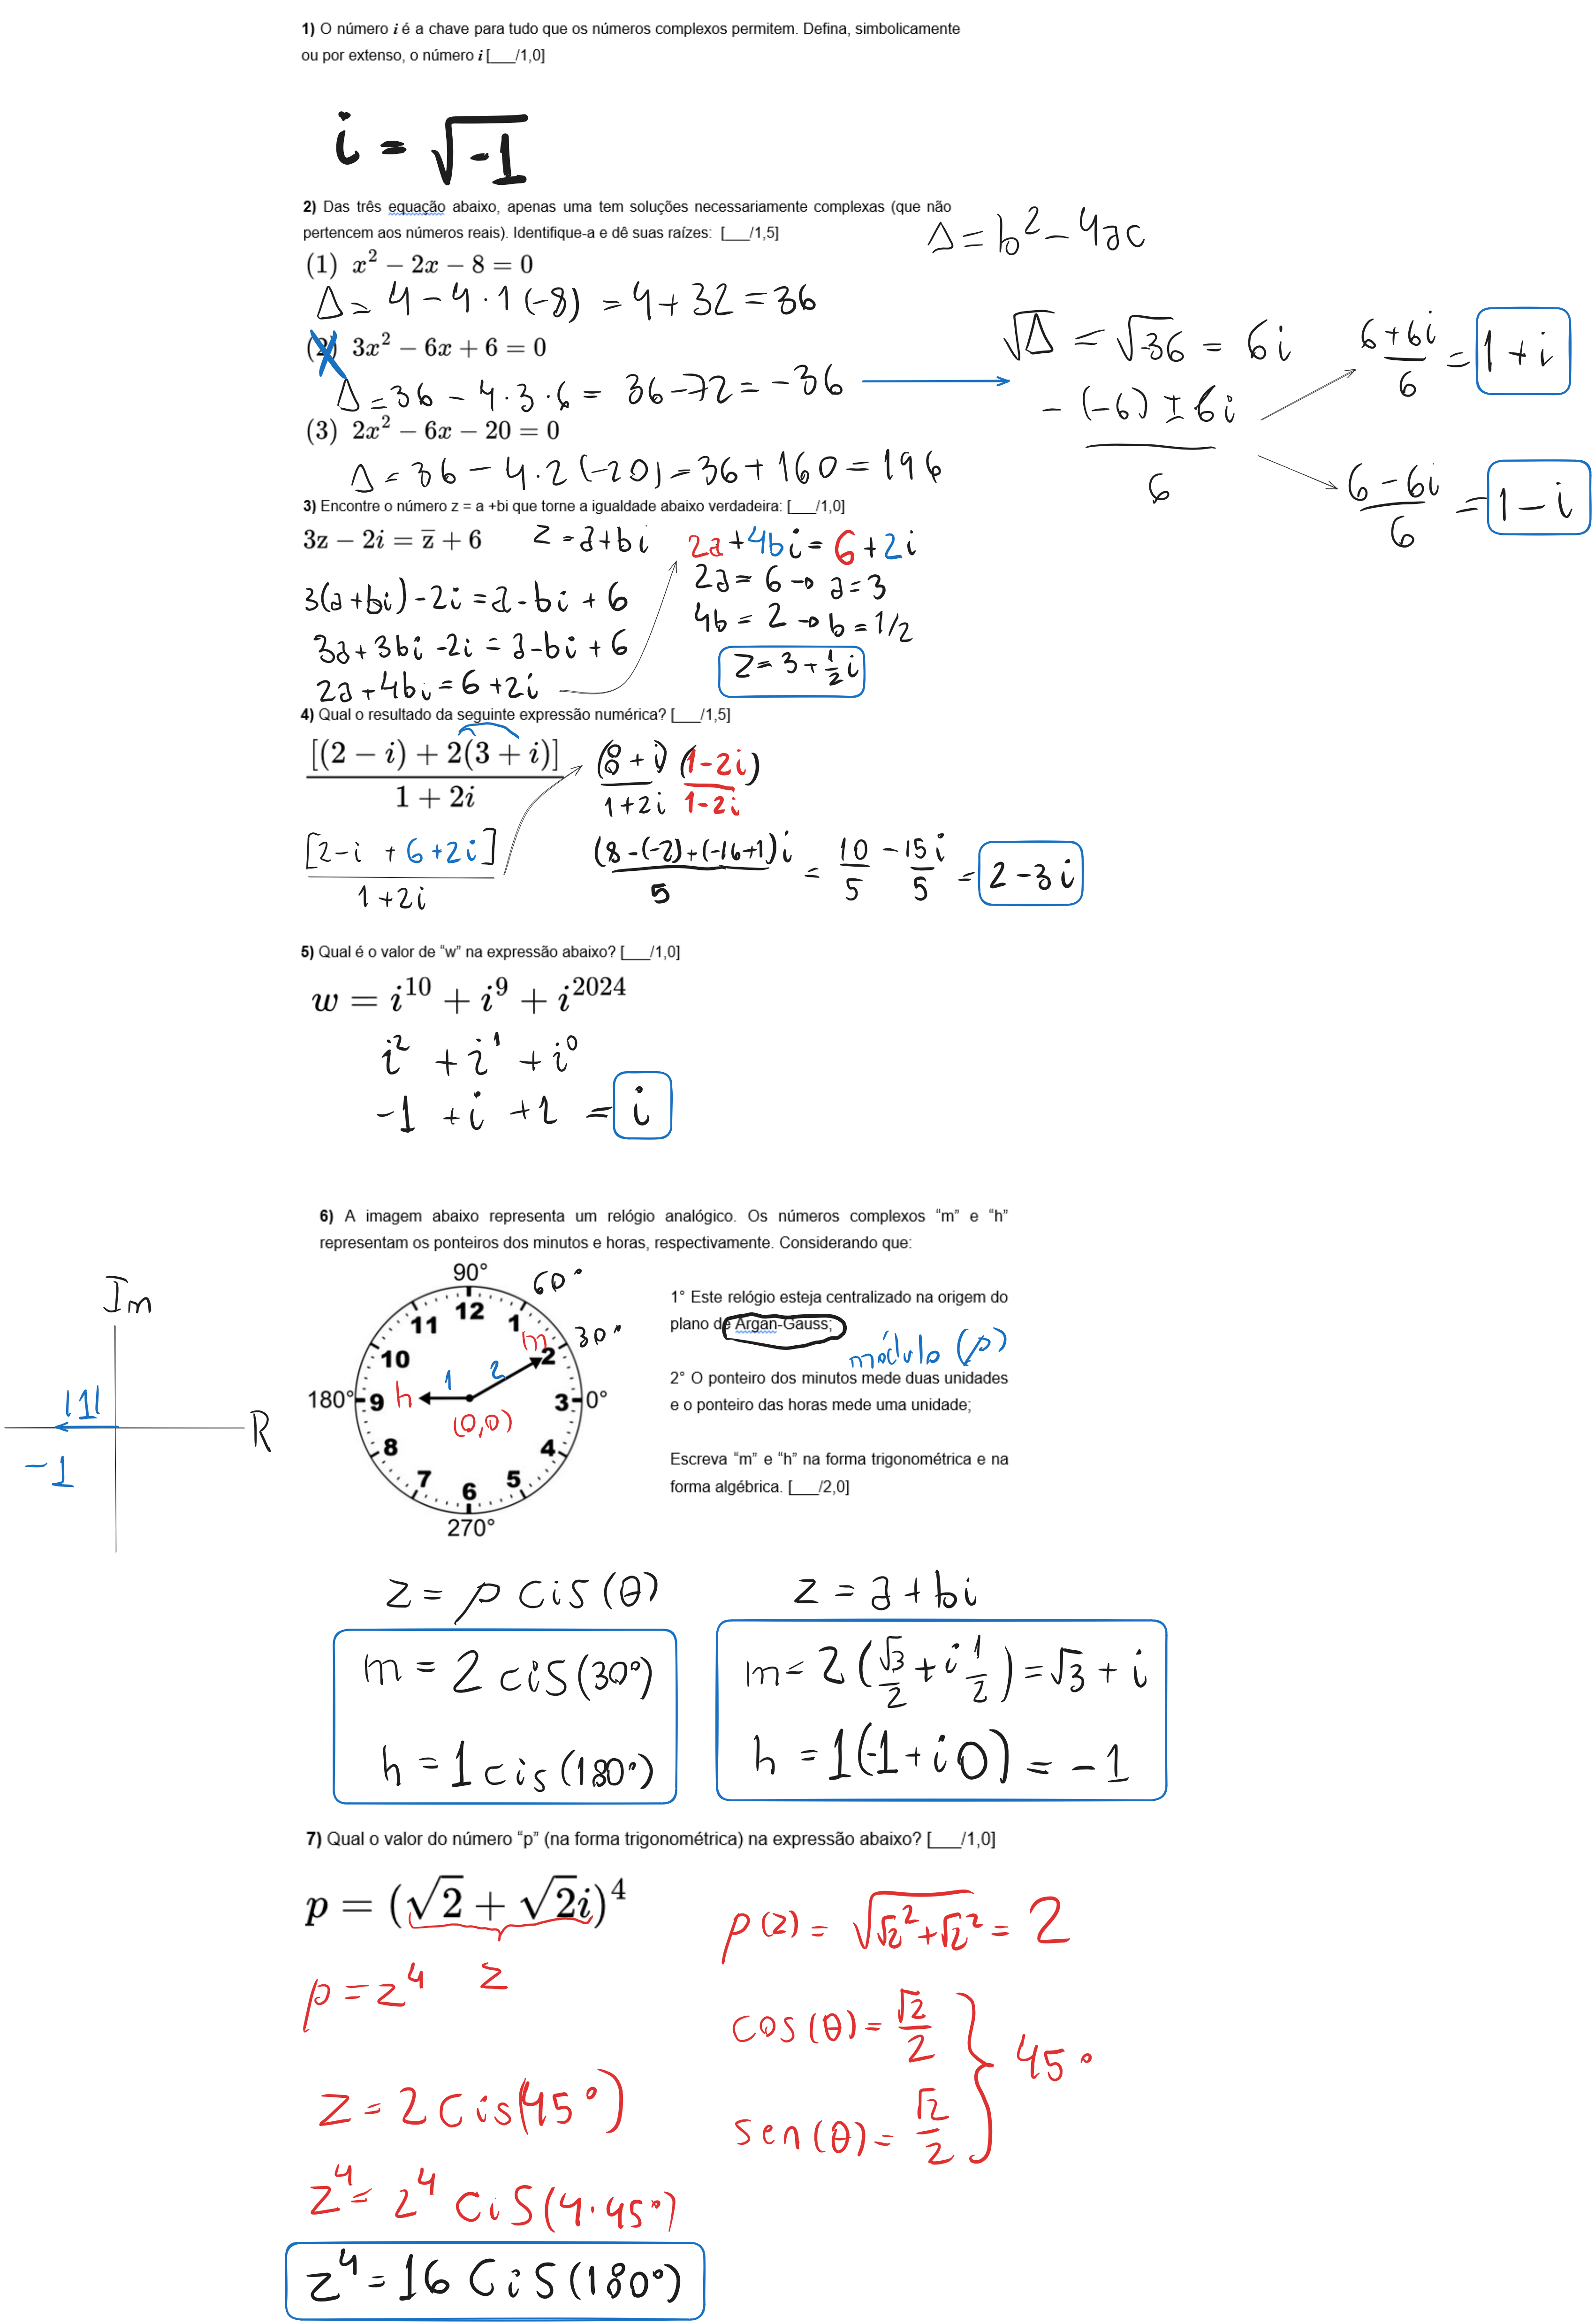 1) O número i é a chave para tudo que os números complexos permitem. Defina, simbolicamente
ou por extenso, o número i [___/1,0]
i = √-1
2) Das três equação abaixo, apenas uma tem soluções necessariamente complexas (que não
pertencem aos números reais). Identifique-a e dê suas raízes: [___/1,5]
Δ = b² - 4ac
(1) x² − 2x − 8 = 0
Δ = 4 - 4·1(-8) = 4 + 32 = 36
(2) 3x² − 6x + 6 = 0
Δ = 36 - 4·3·6 = 36 - 72 = -36
√Δ = √-36 = 6i
-(-6) ± 6i / 6
6 + 6i / 6 = 1 + i
6 - 6i / 6 = 1 - i
(3) 2x² − 6x − 20 = 0
Δ = 36 - 4·2(-20) = 36 + 160 = 196
3) Encontre o número z = a +bi que torne a igualdade abaixo verdadeira: [___/1,0]
3z − 2i = z̅ + 6
z = a + bi
3(a + bi) - 2i = a - bi + 6
3a + 3bi - 2i = a - bi + 6
2a + 4bi = 6 + 2i
2a + 4bi = 6 + 2i
2a = 6 → a = 3
4b = 2 → b = 1/2
z = 3 + 1/2 i
4) Qual o resultado da seguinte expressão numérica? [___/1,5]
[(2 − i) + 2(3 + i)] / 1 + 2i
[2 - i + 6 + 2i] / 1 + 2i
(8 + i) / 1 + 2i (1 - 2i) / 1 - 2i
(8 - (-2) + (-16 + 1)i / 5 = 10/5 - 15i/5 = 2 - 3i
5) Qual é o valor de “w” na expressão abaixo? [___/1,0]
w = i¹⁰ + i⁹ + i²⁰²⁴
i² + i¹ + i⁰
-1 + i + 1 = i
6) A imagem abaixo representa um relógio analógico. Os números complexos “m” e “h”
representam os ponteiros dos minutos e horas, respectivamente. Considerando que:
Im
R
|1|
-1
90°
60°
30°
0°
180°
270°
12
1
2
3
4
5
6
7
8
9
10
11
m
h
1
2
(0,0)
1° Este relógio esteja centralizado na origem do
plano de Argan-Gauss;
módulo (ρ)
2° O ponteiro dos minutos mede duas unidades
e o ponteiro das horas mede uma unidade;
Escreva “m” e “h” na forma trigonométrica e na
forma algébrica. [___/2,0]
z = ρ cis(θ)
m = 2 cis(30°)
h = 1 cis(180°)
z = a + bi
m = 2(√3/2 + i 1/2) = √3 + i
h = 1(-1 + i0) = -1
7) Qual o valor do número “p” (na forma trigonométrica) na expressão abaixo? [___/1,0]
p = (√2 + √2i)⁴
z
p = z⁴
ρ(z) = √(√2² + √2²) = 2
cos(θ) = √2/2
sen(θ) = √2/2
45°
z = 2 cis(45°)
z⁴ = 2⁴ cis(4·45°)
z⁴ = 16 cis(180°)